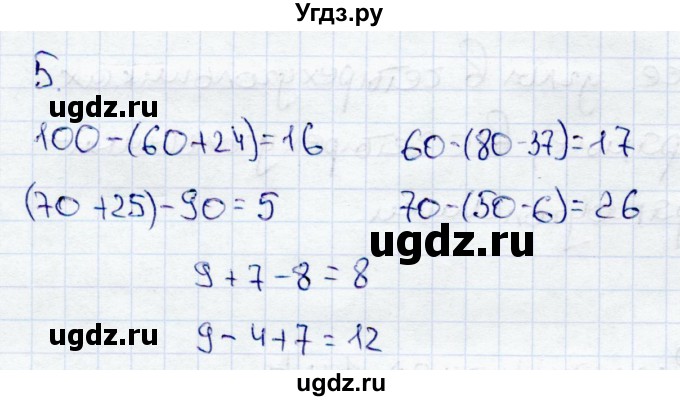 Угдз.ру
5.
ugdz.ru
ugdz.ru
100-(60+24)=16 60-(80-37)=17
(70+25)-90=5 70-(50-6)=26
ugdz.ru
9+7-8=8
ugdz.ru 9-4+7=12
ugdz.ru